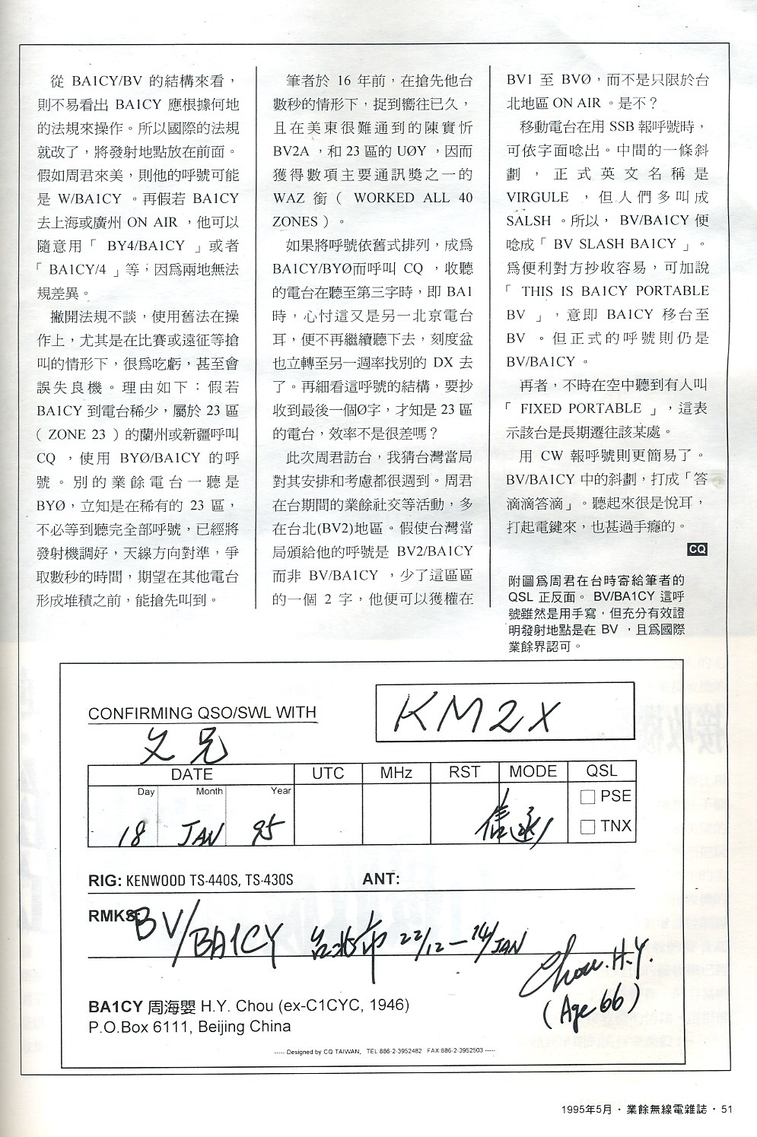 從 BA1CY/BV 的結構來看，
則不易看出 BA1CY 應根據何地
的法規來操作。所以國際的法規
就改了，將發射地點放在前面。
假如周君來美，則他的呼號可能
是 W/BA1CY 。再假若 BA1CY
去上海或廣州 ON AIR ，他可以
隨意用「 BY4/BA1CY 」或者
「 BA1CY/4 」等；因爲兩地無法
規差異。
撇開法規不談，使用舊法在操
作上，尤其是在比賽或遠征等搶
叫的情形下，很爲吃虧，甚至會
誤失良機。理由如下：假若
BA1CY 到電台稀少，屬於 23 區
（ ZONE 23 ）的蘭州或新疆呼叫
CQ ，使用 BYØ/BA1CY 的呼
號。別的業餘電台一聽是
BYØ，立知是在稀有的 23 區，
不必等到聽完全部呼號，已經將
發射機調好，天線方向對準，爭
取數秒的時間，期望在其他電台
形成堆積之前，能搶先叫到。
筆者於 16 年前，在搶先他台
數秒的情形下，捉到嚮往已久，
且在美東很難通到的陳實忻
BV2A ，和 23 區的 UØY ，因而
獲得數項主要通訊獎之一的
WAZ 銜（ WORKED ALL 40
ZONES ）。
如果將呼號依舊式排列，成爲
BA1CY/BYØ而呼叫 CQ ，收聽
的電台在聽至第三字時，即 BA1
時，心忖這又是另一北京電台
耳，便不再繼續聽下去，刻度盆
也立轉至另一週率找別的 DX 去
了。再細看這呼號的結構，要抄
收到最後一個Ø字，才知是 23 區
的電台，效率不是很差嗎？
此次周君訪台，我猜台灣當局
對其安排和考慮都很週到。周君
在台期間的業餘社交等活動，多
在台北(BV2)地區。假使台灣當
局頒給他的呼號是 BV2/BA1CY
而非 BV/BA1CY ，少了這區區
的一個 2 字，他便可以獲權在
BV1 至 BVØ，而不是只限於台
北地區 ON AIR 。是不？
移動電台在用 SSB 報呼號時，
可依字面唸出。中間的一條斜
劃，正式英文名稱是
VIRGULE ，但人們多叫成
SALSH 。所以， BV/BA1CY 便
唸成「 BV SLASH BA1CY 」。
爲便利對方抄收容易，可加說
「 THIS IS BA1CY PORTABLE
BV 」，意即 BA1CY 移台至
BV 。但正式的呼號則仍是
BV/BA1CY 。
再者，不時在空中聽到有人叫
「 FIXED PORTABLE 」，這表
示該台是長期遷往該某處。
用 CW 報呼號則更簡易了。
BV/BA1CY 中的斜劃，打成「答
滴滴答滴」。聽起來很是悅耳，
打起電鍵來，也甚過手癮的。
CQ
附圖爲周君在台時寄給筆者的
QSL 正反面。 BV/BA1CY 這呼
號雖然是用手寫，但充分有效證
明發射地點是在 BV ，且爲國際
業餘界認可。
CONFIRMING QSO/SWL WITH
KM2X
文兄
DATE UTC MHz RST MODE QSL
Day Month Year
18 JAN 95
信函
PSE
TNX
RIG: KENWOOD TS-440S, TS-430S ANT:
RMKS:
BV/BA1CY 台北市 22/12—14/JAN
Chou. H.Y.
(Age 66)
BA1CY 周海嬰 H.Y. Chou (ex-C1CYC, 1946)
P.O.Box 6111, Beijing China
----- Designed by CQ TAIWAN, TEL 886-2-3952482 FAX 886-2-3952503 -----
1995年5月・業餘無線電雜誌・51